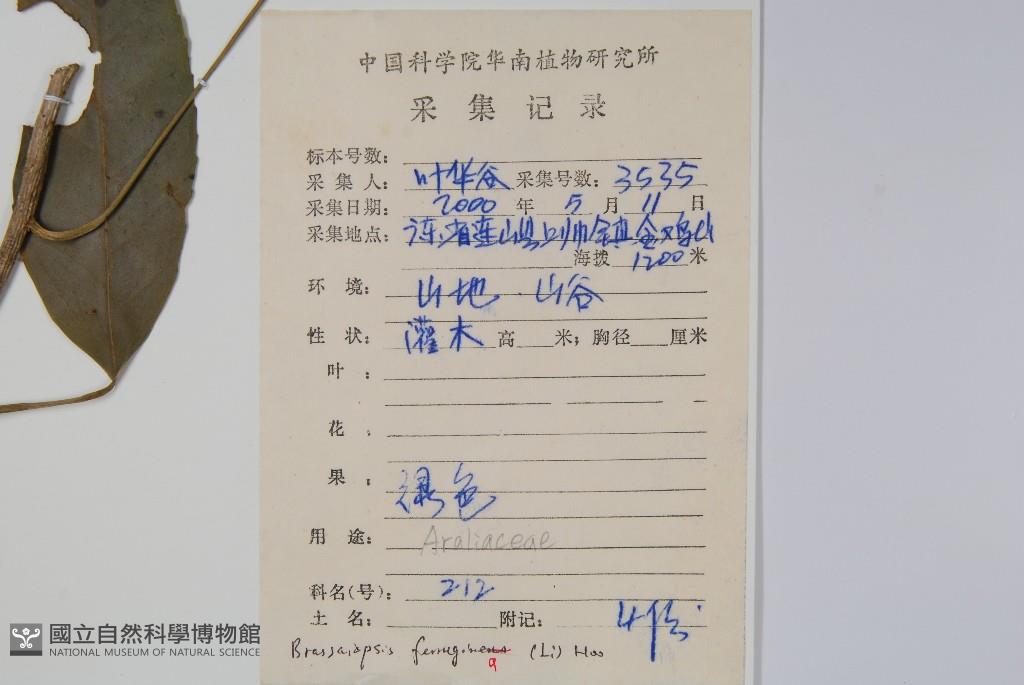 中国科学院华南植物研究所
采集记录
标本号数：
采集人： 叶华谷 采集号数： 3535
采集日期： 2000 年 5 月 11 日
采集地点： 省连山县上帅镇金鸡山
海拨 1200 米
环境： 山地 山谷
性状： 灌木 高 米；胸径 厘米
叶：
花：
果： 绿色
用途： Araliaceae
科名(号)： 212
土名： 附记： 4份
Brassaiopsis ferruginea (Li) Hoo
a
國立自然科學博物館
NATIONAL MUSEUM OF NATURAL SCIENCE